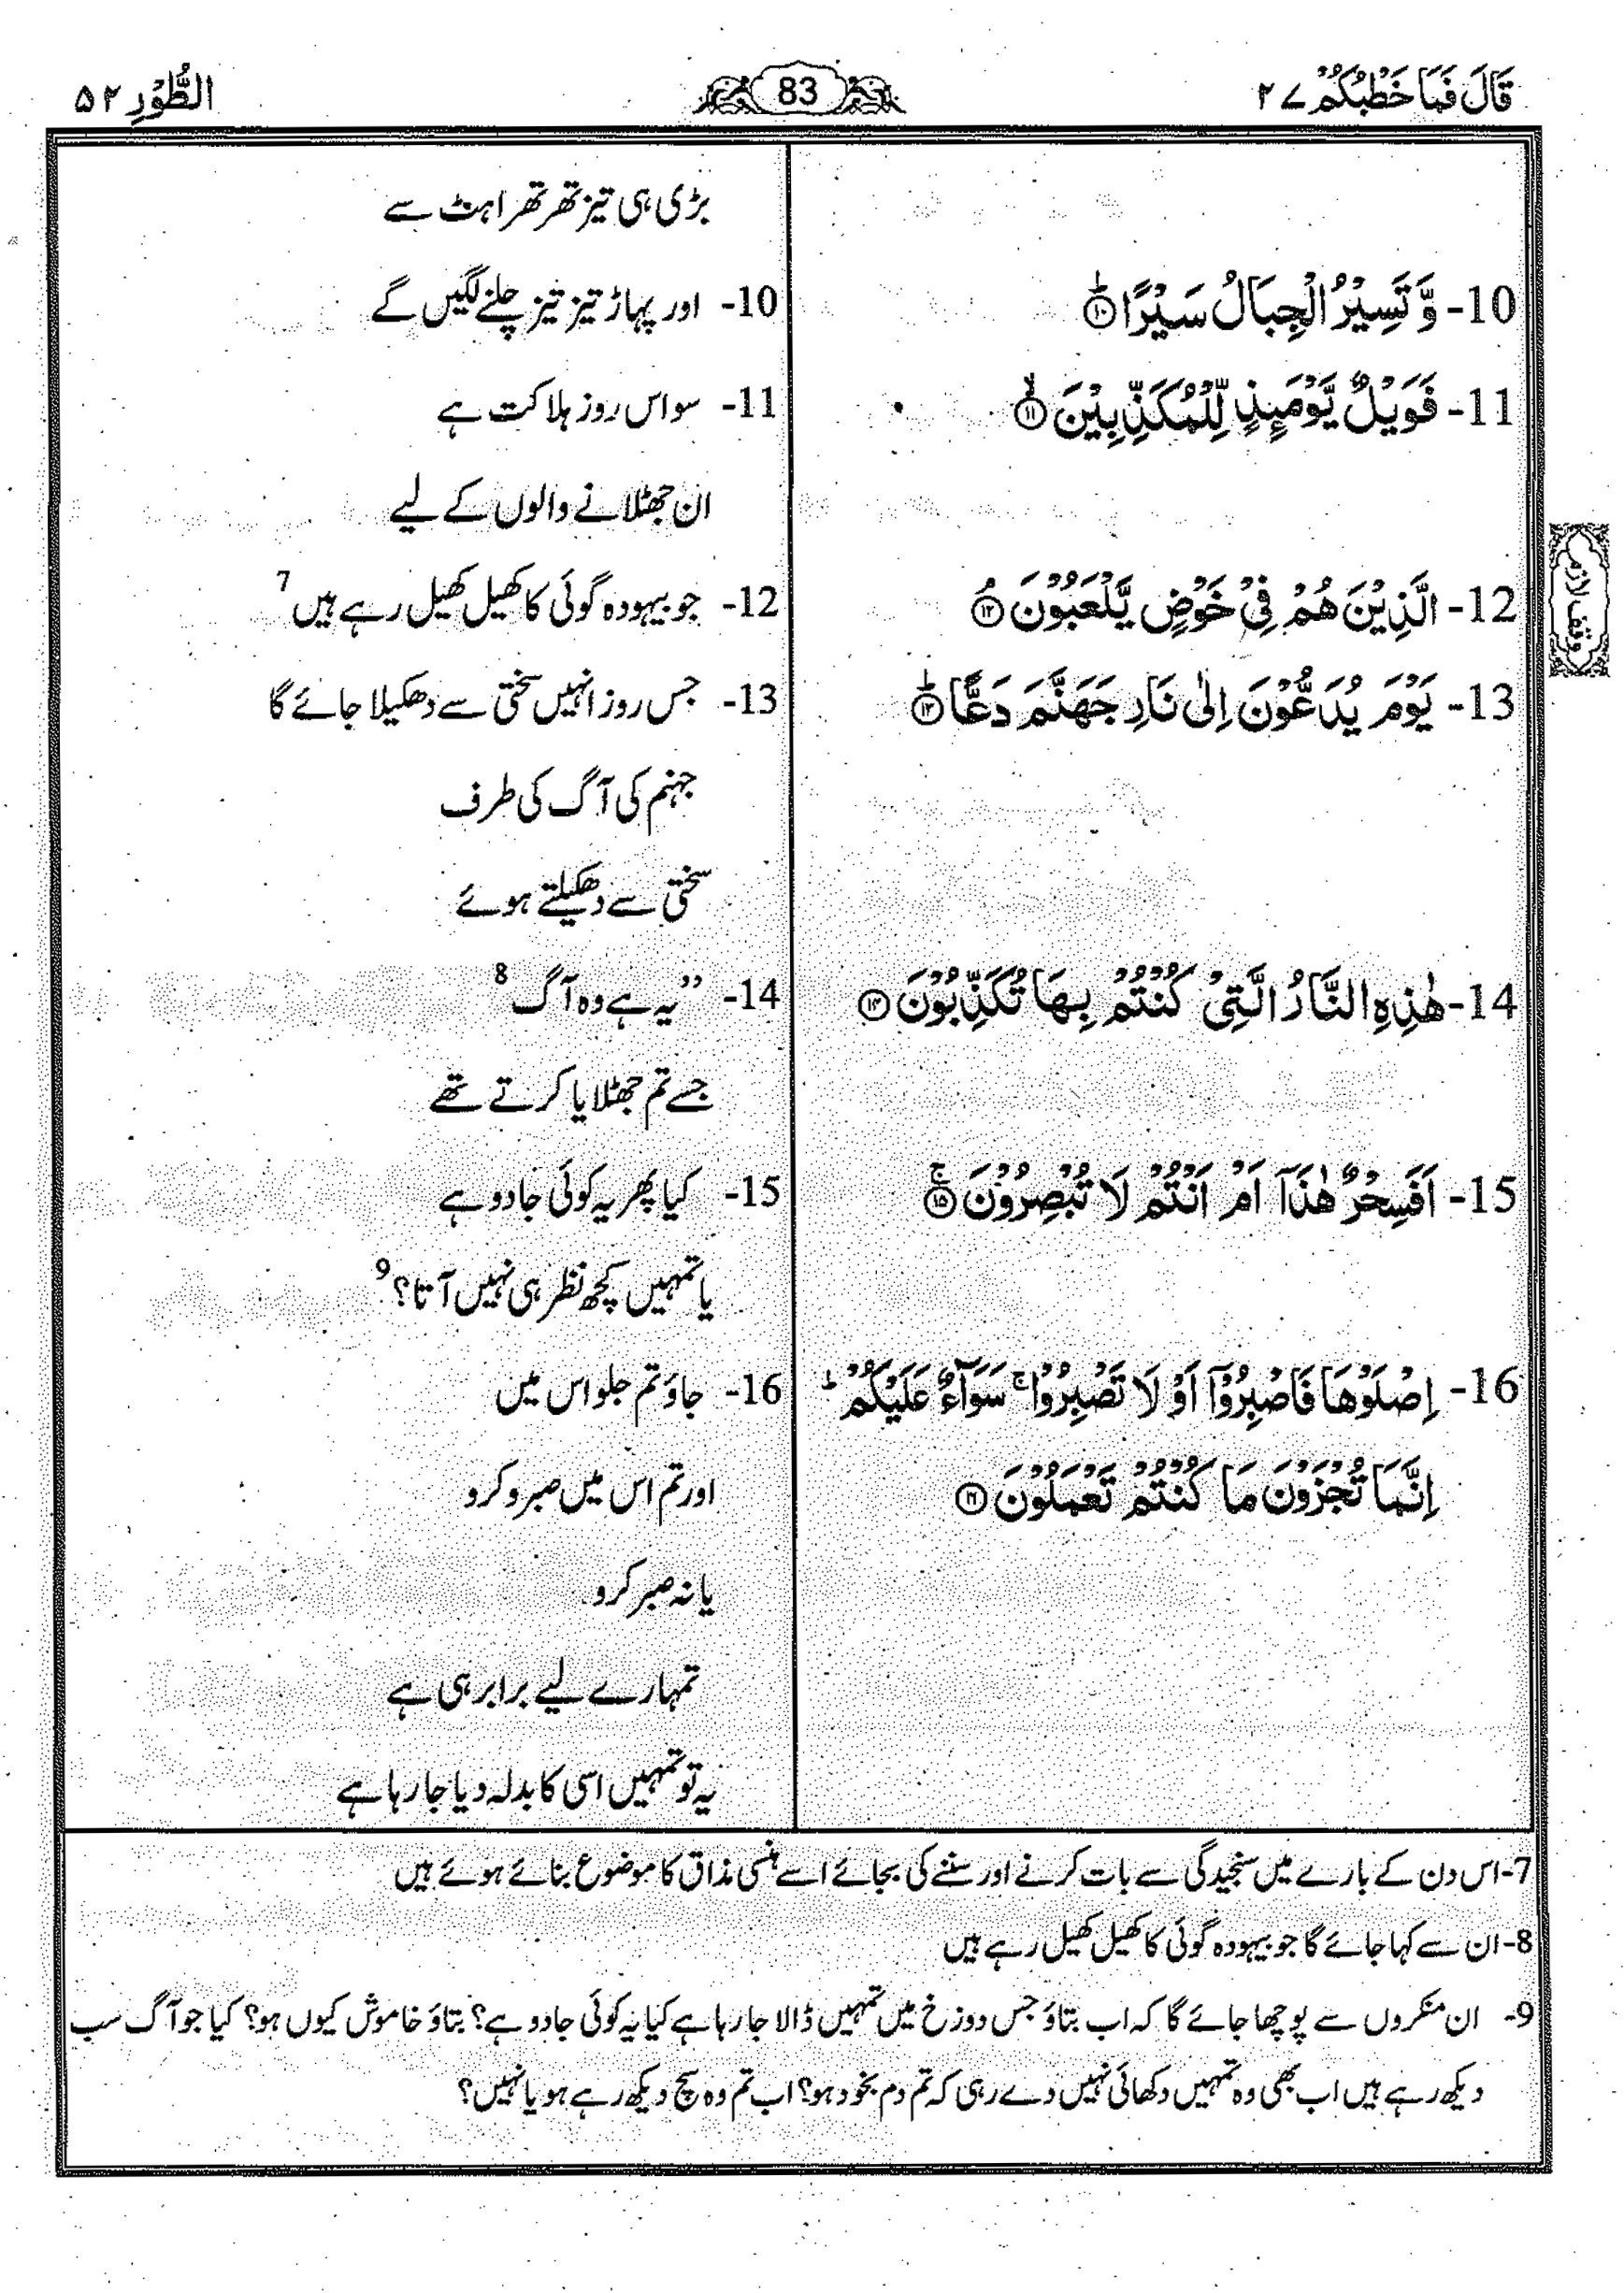 قَالَ فَمَا خَطْبُكُمْ ۲۷
83
الطُّوْرِ ۵۲
بڑی ہی تیز تھر تھراہٹ سے
10- وَّ تَسِيْرُ الْجِبَالُ سَيْرًا ؕ۝۱۰
10- اور پہاڑ تیز تیز چلنے لگیں گے
11- فَوَيْلٌ يَّوْمَىِٕذٍ لِّلْمُكَذِّبِيْنَ ۙ۝۱۱
11- سو اس روز ہلاکت ہے
ان جھٹلانے والوں کے لیے
12- الَّذِيْنَ هُمْ فِيْ خَوْضٍ يَّلْعَبُوْنَ ۘ۝۱۲
12- جو بیہودہ گوئی کا کھیل کھیل رہے ہیں 7
وقف لازم
13- يَوْمَ يُدَعُّوْنَ اِلٰى نَارِ جَهَنَّمَ دَعًّا ؕ۝۱۳
13- جس روز انہیں سختی سے دھکیلا جائے گا
جہنم کی آگ کی طرف
سختی سے دھکیلتے ہوئے
14- هٰذِهِ النَّارُ الَّتِيْ كُنْتُمْ بِهَا تُكَذِّبُوْنَ ۝۱۴
14- ’’یہ ہے وہ آگ 8
جسے تم جھٹلایا کرتے تھے
15- اَفَسِحْرٌ هٰذَاۤ اَمْ اَنْتُمْ لَا تُبْصِرُوْنَ ۚ۝۱۵
15- کیا پھر یہ کوئی جادو ہے
یا تمہیں کچھ نظر ہی نہیں آتا؟ 9
16- اِصْلَوْهَا فَاصْبِرُوْۤا اَوْ لَا تَصْبِرُوْا ۚ سَوَآءٌ عَلَيْكُمْ ؕ
اِنَّمَا تُجْزَوْنَ مَا كُنْتُمْ تَعْمَلُوْنَ ۝۱۶
16- جاؤ تم جلو اس میں
اور تم اس میں صبر و کرو
یا نہ صبر کرو
تمہارے لیے برابر ہی ہے
یہ تو تمہیں اسی کا بدلہ دیا جا رہا ہے
7- اس دن کے بارے میں سنجیدگی سے بات کرنے اور سننے کی بجائے اسے ہنسی مذاق کا موضوع بنائے ہوئے ہیں
8- ان سے کہا جائے گا جو بیہودہ گوئی کا کھیل کھیل رہے ہیں
9- ان منکروں سے پوچھا جائے گا کہ اب بتاؤ جس دوزخ میں تمہیں ڈالا جا رہا ہے کیا یہ کوئی جادو ہے؟ بتاؤ خاموش کیوں ہو؟ کیا جو آگ سب
دیکھ رہے ہیں اب بھی وہ تمہیں دکھائی نہیں دے رہی کہ تم دم بخود ہو؟ اب تم وہ سچ دیکھ رہے ہو یا نہیں؟